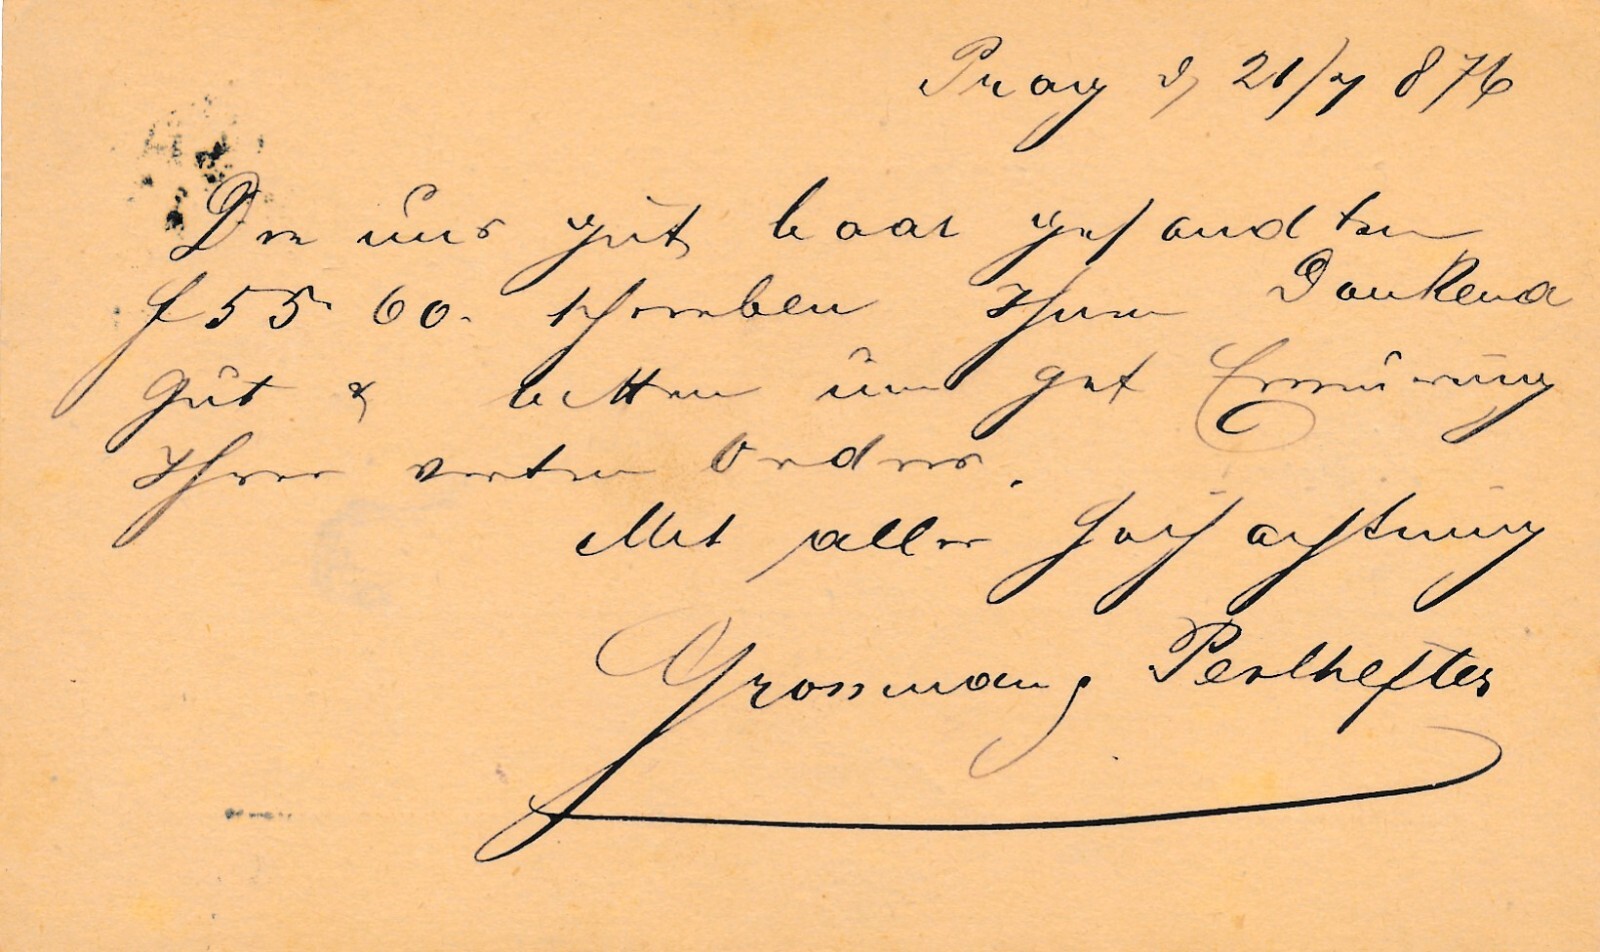 Prag d, 21/7 876
Die uns gut, baar gesandten
f 55. 60. schreiben Ihnen Dankend
gut & bitten um gef Erneuerung
Ihrer werten Orders.
Mit aller Hochachtung
Grossmann, Perlhefter